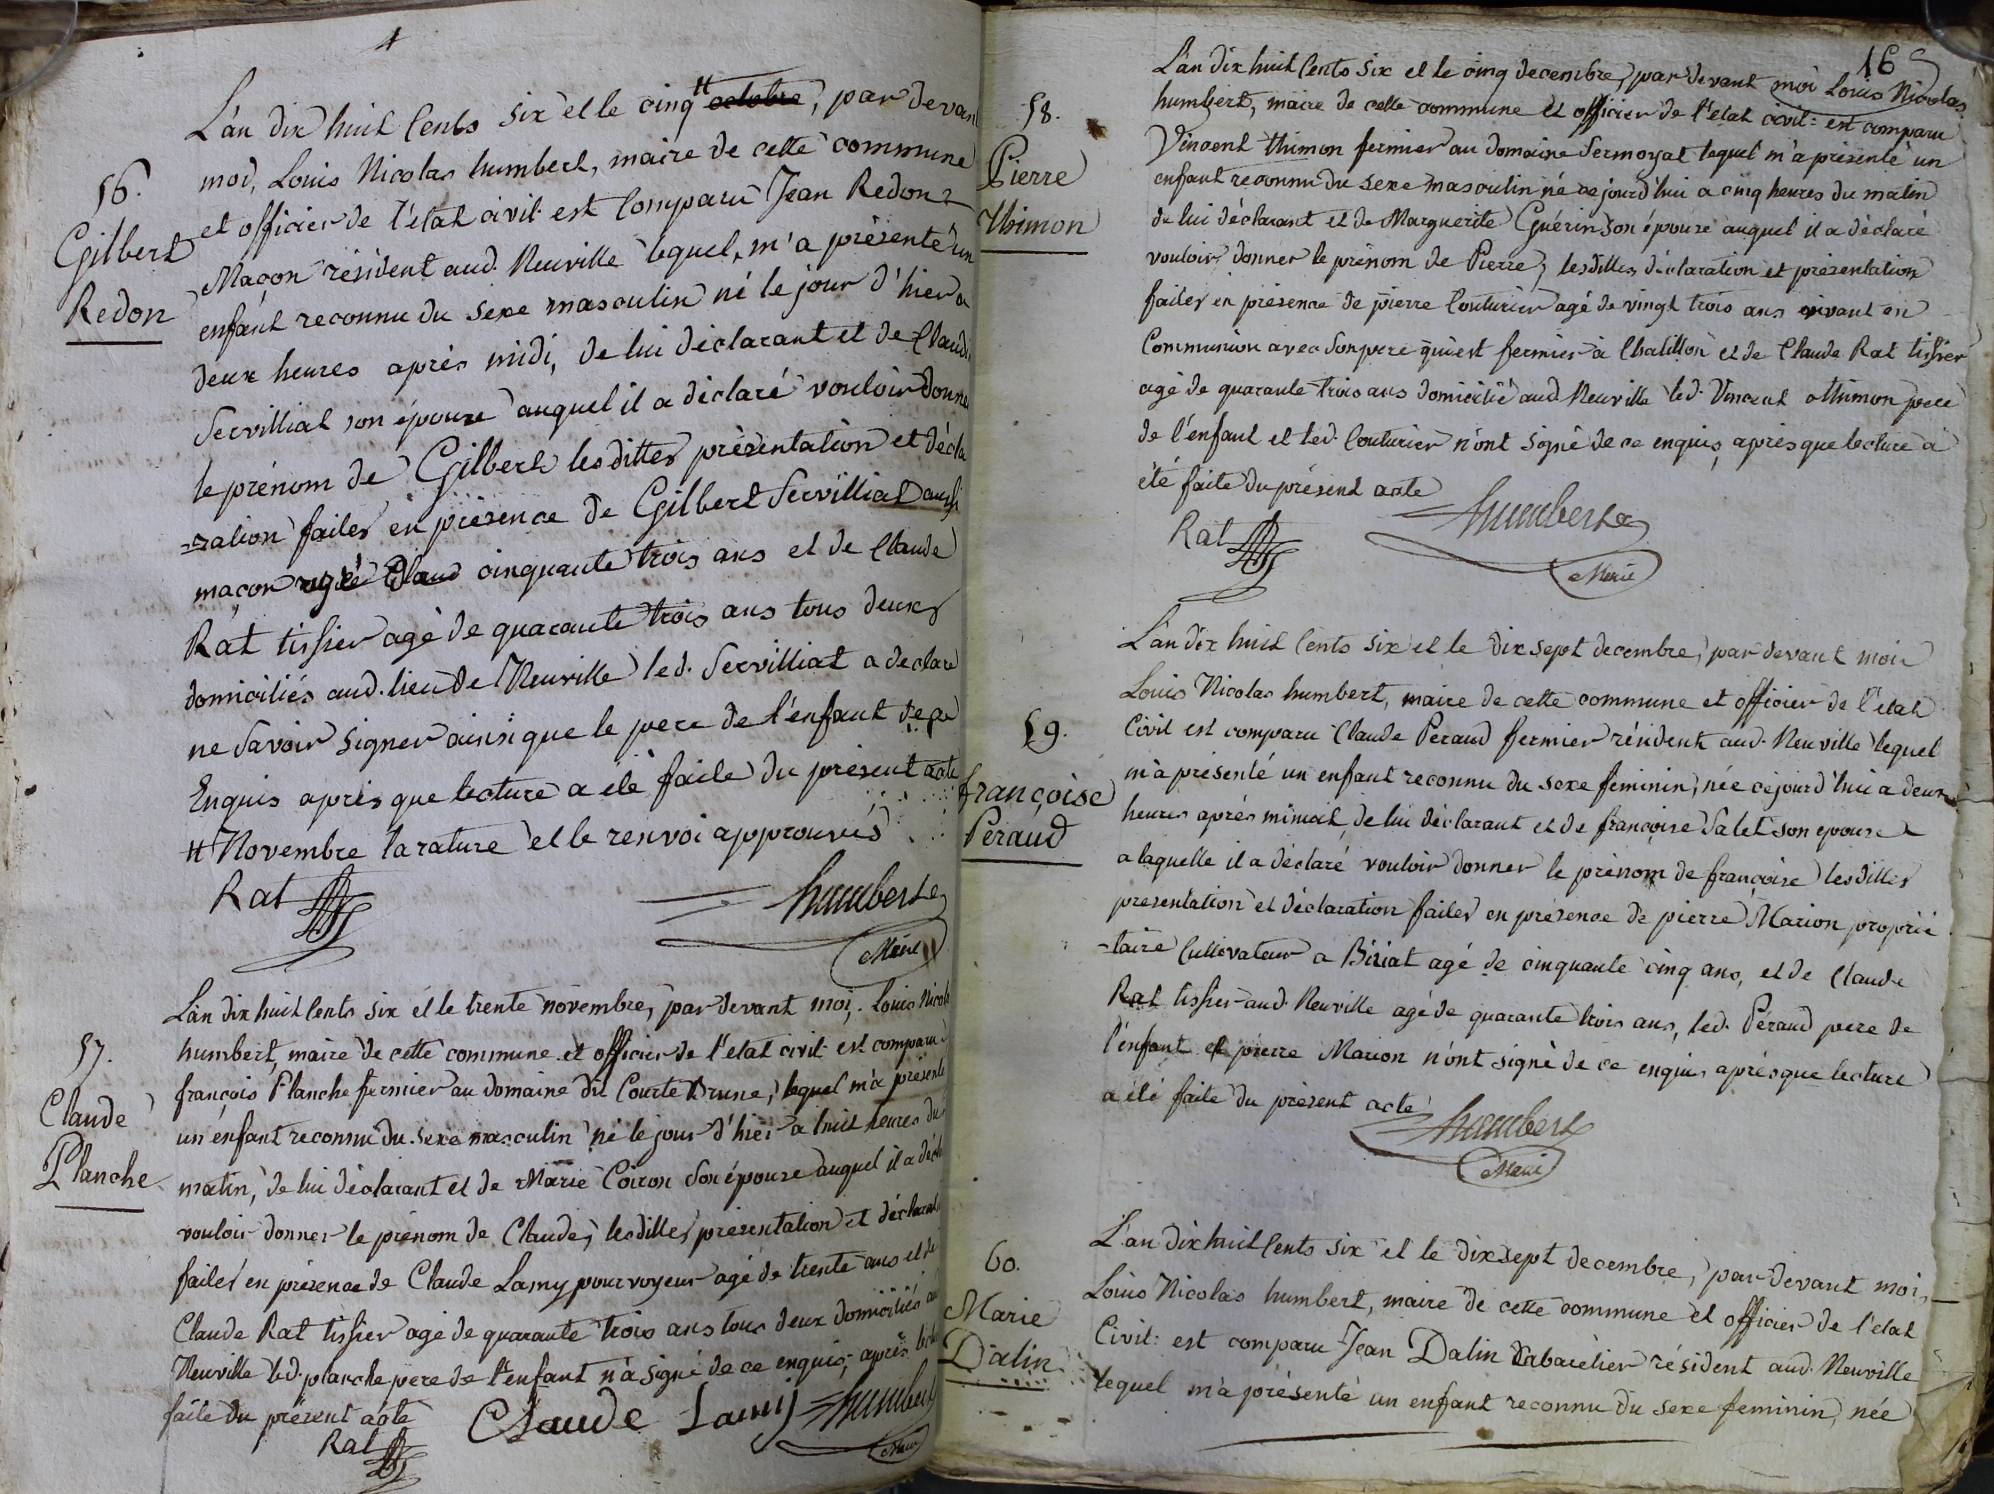 4
56.
Gilbert
Redon
L'an dix huit Cents six et le cinq # octobre, par devant
moi, Louis Nicolas humbert, maire de cette commune
et officier de l'état civil est Comparu Jean Redon
Maçon résident aud. Neuville lequel, m'a présenté un
enfant reconnu du sexe masculin né le jour d'hier a
deux heures après midi, de lui déclarant et de Claudi
Servilliat son épouze auquel il a déclaré vouloir donne
le prénom de Gilbert lesdittes présentation et décla
-ration faites en présence de Gilbert Servilliat aussi
maçon agé cinquante trois ans et de Claude
Rat tissier agé de quarante trois ans tous deux
domiciliés aud. lieu de Neuville led. Servilliat a declaré
ne Savoir signer ainsi que le pere de l'enfant de ce
Enquis après que lecture a été faite du présent acte
# Novembre la rature et le renvoi approuvés
Rat humbert
Maire
57.
Claude
Planche
L'an dix huit Cents six et le trente novembre, par devant moi, Louis Nicola
humbert, maire de cette commune et officier de l'etat civil est comparu
françois Planche fermier au domaine dit Courte Brune, lequel m'a présenté
un enfant reconnu du sexe masculin né le jour d'hier a huit heures du
matin, de lui déclarant et de Marie Coiron son épouze auquel il a décla
vouloir donner le prénom de Claude, lesdittes présentation et déclarat
faites en présence de Claude Lamy pourvoyeur agé de trente ans et de
Claude Rat tissier agé de quarante trois ans tous deux domiciliés au
Neuville led. planche pere de l'enfant n'a signé de ce enquis, après lectu
faite du présent acte Claude Lamy humbert
Rat Maire
165
58.
Pierre
Thimon
L'an dix huit Cents Six et le cinq decembre, par devant moi Louis Nicolas
humbert, maire de cette commune et officier de l'état civil: est comparu
Vincent thimon fermier au domaine Sermoyat lequel m'a présenté un
enfant reconnu du sexe masculin né ce jourd'hui a cinq heures du matin
de lui déclarant et de Marguerite Guérin son épouze auquel il a déclaré
vouloir donner le prénom de Pierre, lesdittes déclaration et présentation
faites en présence de pierre Couturier agé de vingt trois ans vivant en
Communion avec son pere qui est fermier à Chatillon et de Claude Rat tissier
agé de quarante trois ans domicilié aud. Neuville led. Vincent thimon pere
de l'enfant et led. Couturier n'ont signé de ce enquis, après que lecture a
été faite du présent acte
Rat humbert
Maire
59.
françoise
Péraud
L'an dix huit Cents six et le dix sept decembre, par devant moi
Louis Nicolas humbert, maire de cette commune et officier de l'état
Civil est comparu Claude Peraud fermier résident aud. Neuville lequel
m'a présenté un enfant reconnu du sexe feminin, née ce jourd'hui a deux
heures après minuit, de lui déclarant et de françoise Salet son epouze
a laquelle il a déclaré vouloir donner le prénom de françoise lesdittes
presentation et déclaration faites en présence de pierre Marion proprié
-taire Cultivateur a Biziat agé de cinquante cinq ans, et de Claude
Rat tissier aud. Neuville agé de quarante trois ans, led. Péraud pere de
l'enfant et pierre Marion n'ont signé de ce enquis, après que lecture
a été faite du présent acte
humbert
Maire
60.
Marie
Dalin
L'an dix huit Cents six et le dix sept decembre, par devant moi,
Louis Nicolas humbert, maire de cette commune et officier de l'etat
Civil: est comparu Jean Dalin Cabaretier résident aud. Neuville
lequel m'a présenté un enfant reconnu du sexe feminin, née